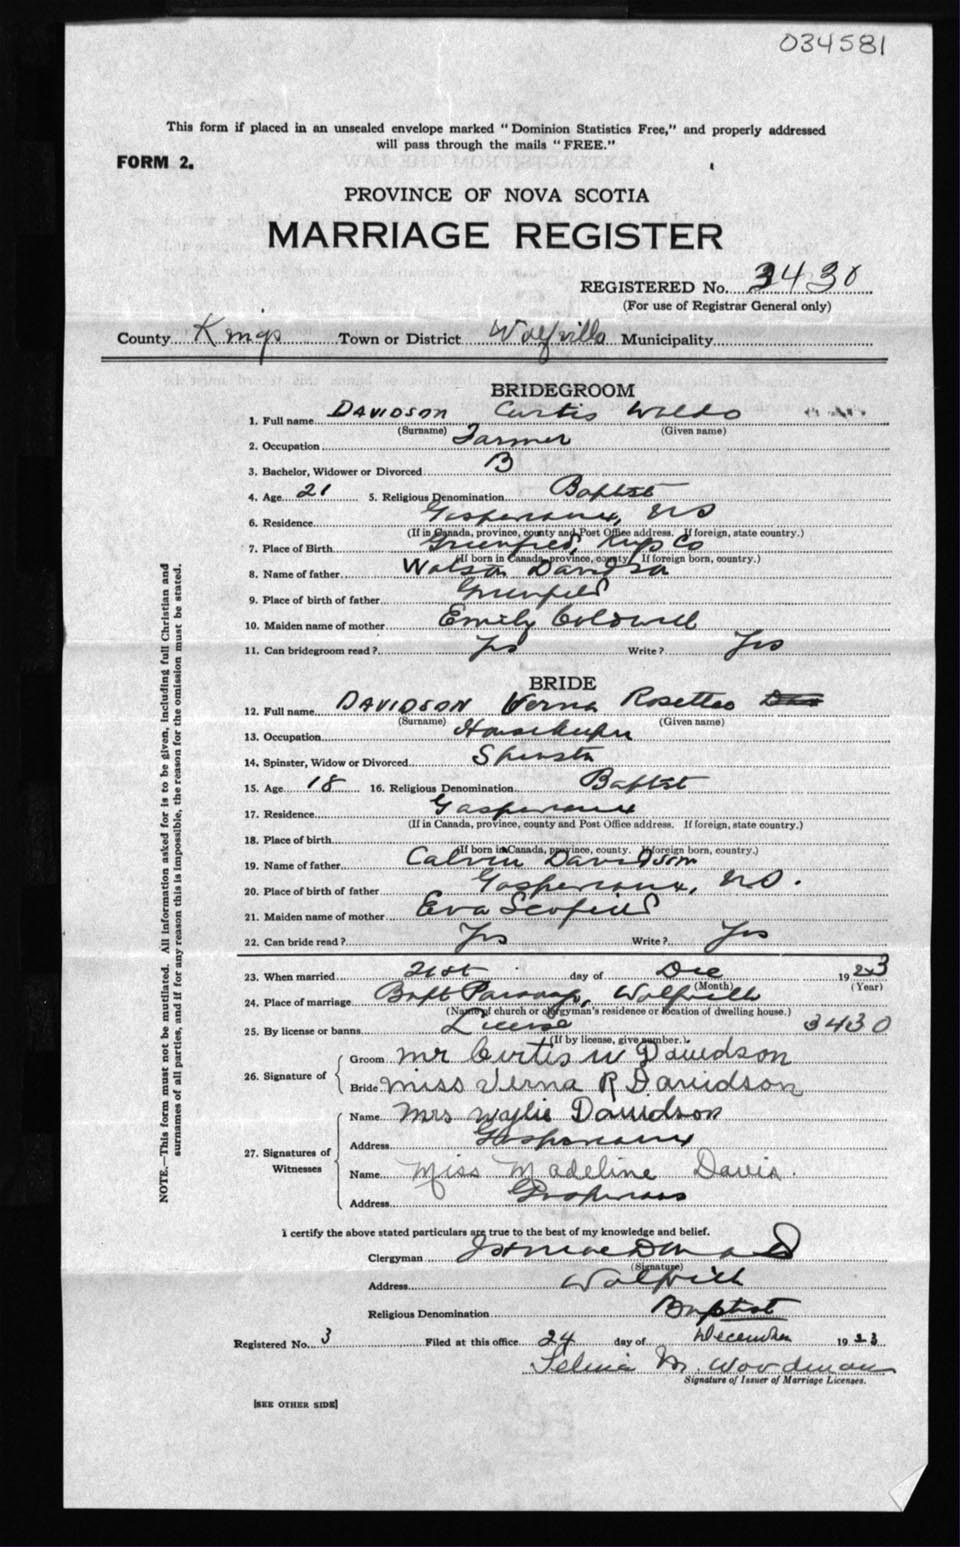 034581
This form if placed in an unsealed envelope marked "Dominion Statistics Free," and properly addressed
will pass through the mails "FREE."
FORM 2.
PROVINCE OF NOVA SCOTIA
MARRIAGE REGISTER
REGISTERED No. 3430
(For use of Registrar General only)
County Kings Town or District Wolfville Municipality
BRIDEGROOM
1. Full name DAVIDSON Curtis Waldo
(Surname) (Given name)
2. Occupation Farmer
3. Bachelor, Widower or Divorced B
4. Age 21 5. Religious Denomination Baptist
6. Residence Gaspereaux, NS
(If in Canada, province, county and Post Office address. If foreign, state country.)
7. Place of Birth Greenfield, Kings Co
(If born in Canada, province, county. If foreign born, country.)
8. Name of father Davidson
9. Place of birth of father Greenfield
10. Maiden name of mother Emily Coldwell
11. Can bridegroom read? Yes Write? Yes
BRIDE
12. Full name DAVIDSON Verna Rosetta
(Surname) (Given name)
13. Occupation Housekeeper
14. Spinster, Widow or Divorced Spinster
15. Age 18 16. Religious Denomination Baptist
17. Residence Gaspereaux
(If in Canada, province, county and Post Office address. If foreign, state country.)
18. Place of birth
(If born in Canada, province, county. If foreign born, country.)
19. Name of father Calvin Davidson
20. Place of birth of father Gaspereaux, N.S.
21. Maiden name of mother Eva Scofield
22. Can bride read? Yes Write? Yes
23. When married 21st day of Dec 1923
(Month) (Year)
24. Place of marriage Bapt Parsonage, Wolfville
(Name of church or clergyman's residence or location of dwelling house.)
25. By license or banns License 3430
(If by license, give number.)
26. Signature of Groom Mr Curtis W Davidson
Bride Miss Verna R Davidson
27. Signatures of Witnesses
Name Mrs Wylie Davidson
Address Gaspereaux
Name Miss Madeline Davis.
Address Gaspereaux
I certify the above stated particulars are true to the best of my knowledge and belief.
Clergyman
(Signature)
Address Wolfville
Religious Denomination Baptist
Registered No. 3 Filed at this office 24 day of December 1923
M. Woodman
Signature of Issuer of Marriage Licenses.
[SEE OTHER SIDE]
NOTE.—This form must not be mutilated. All information asked for is to be given, including full Christian and
surnames of all parties, and if for any reason this is impossible, the reason for the omission must be stated.